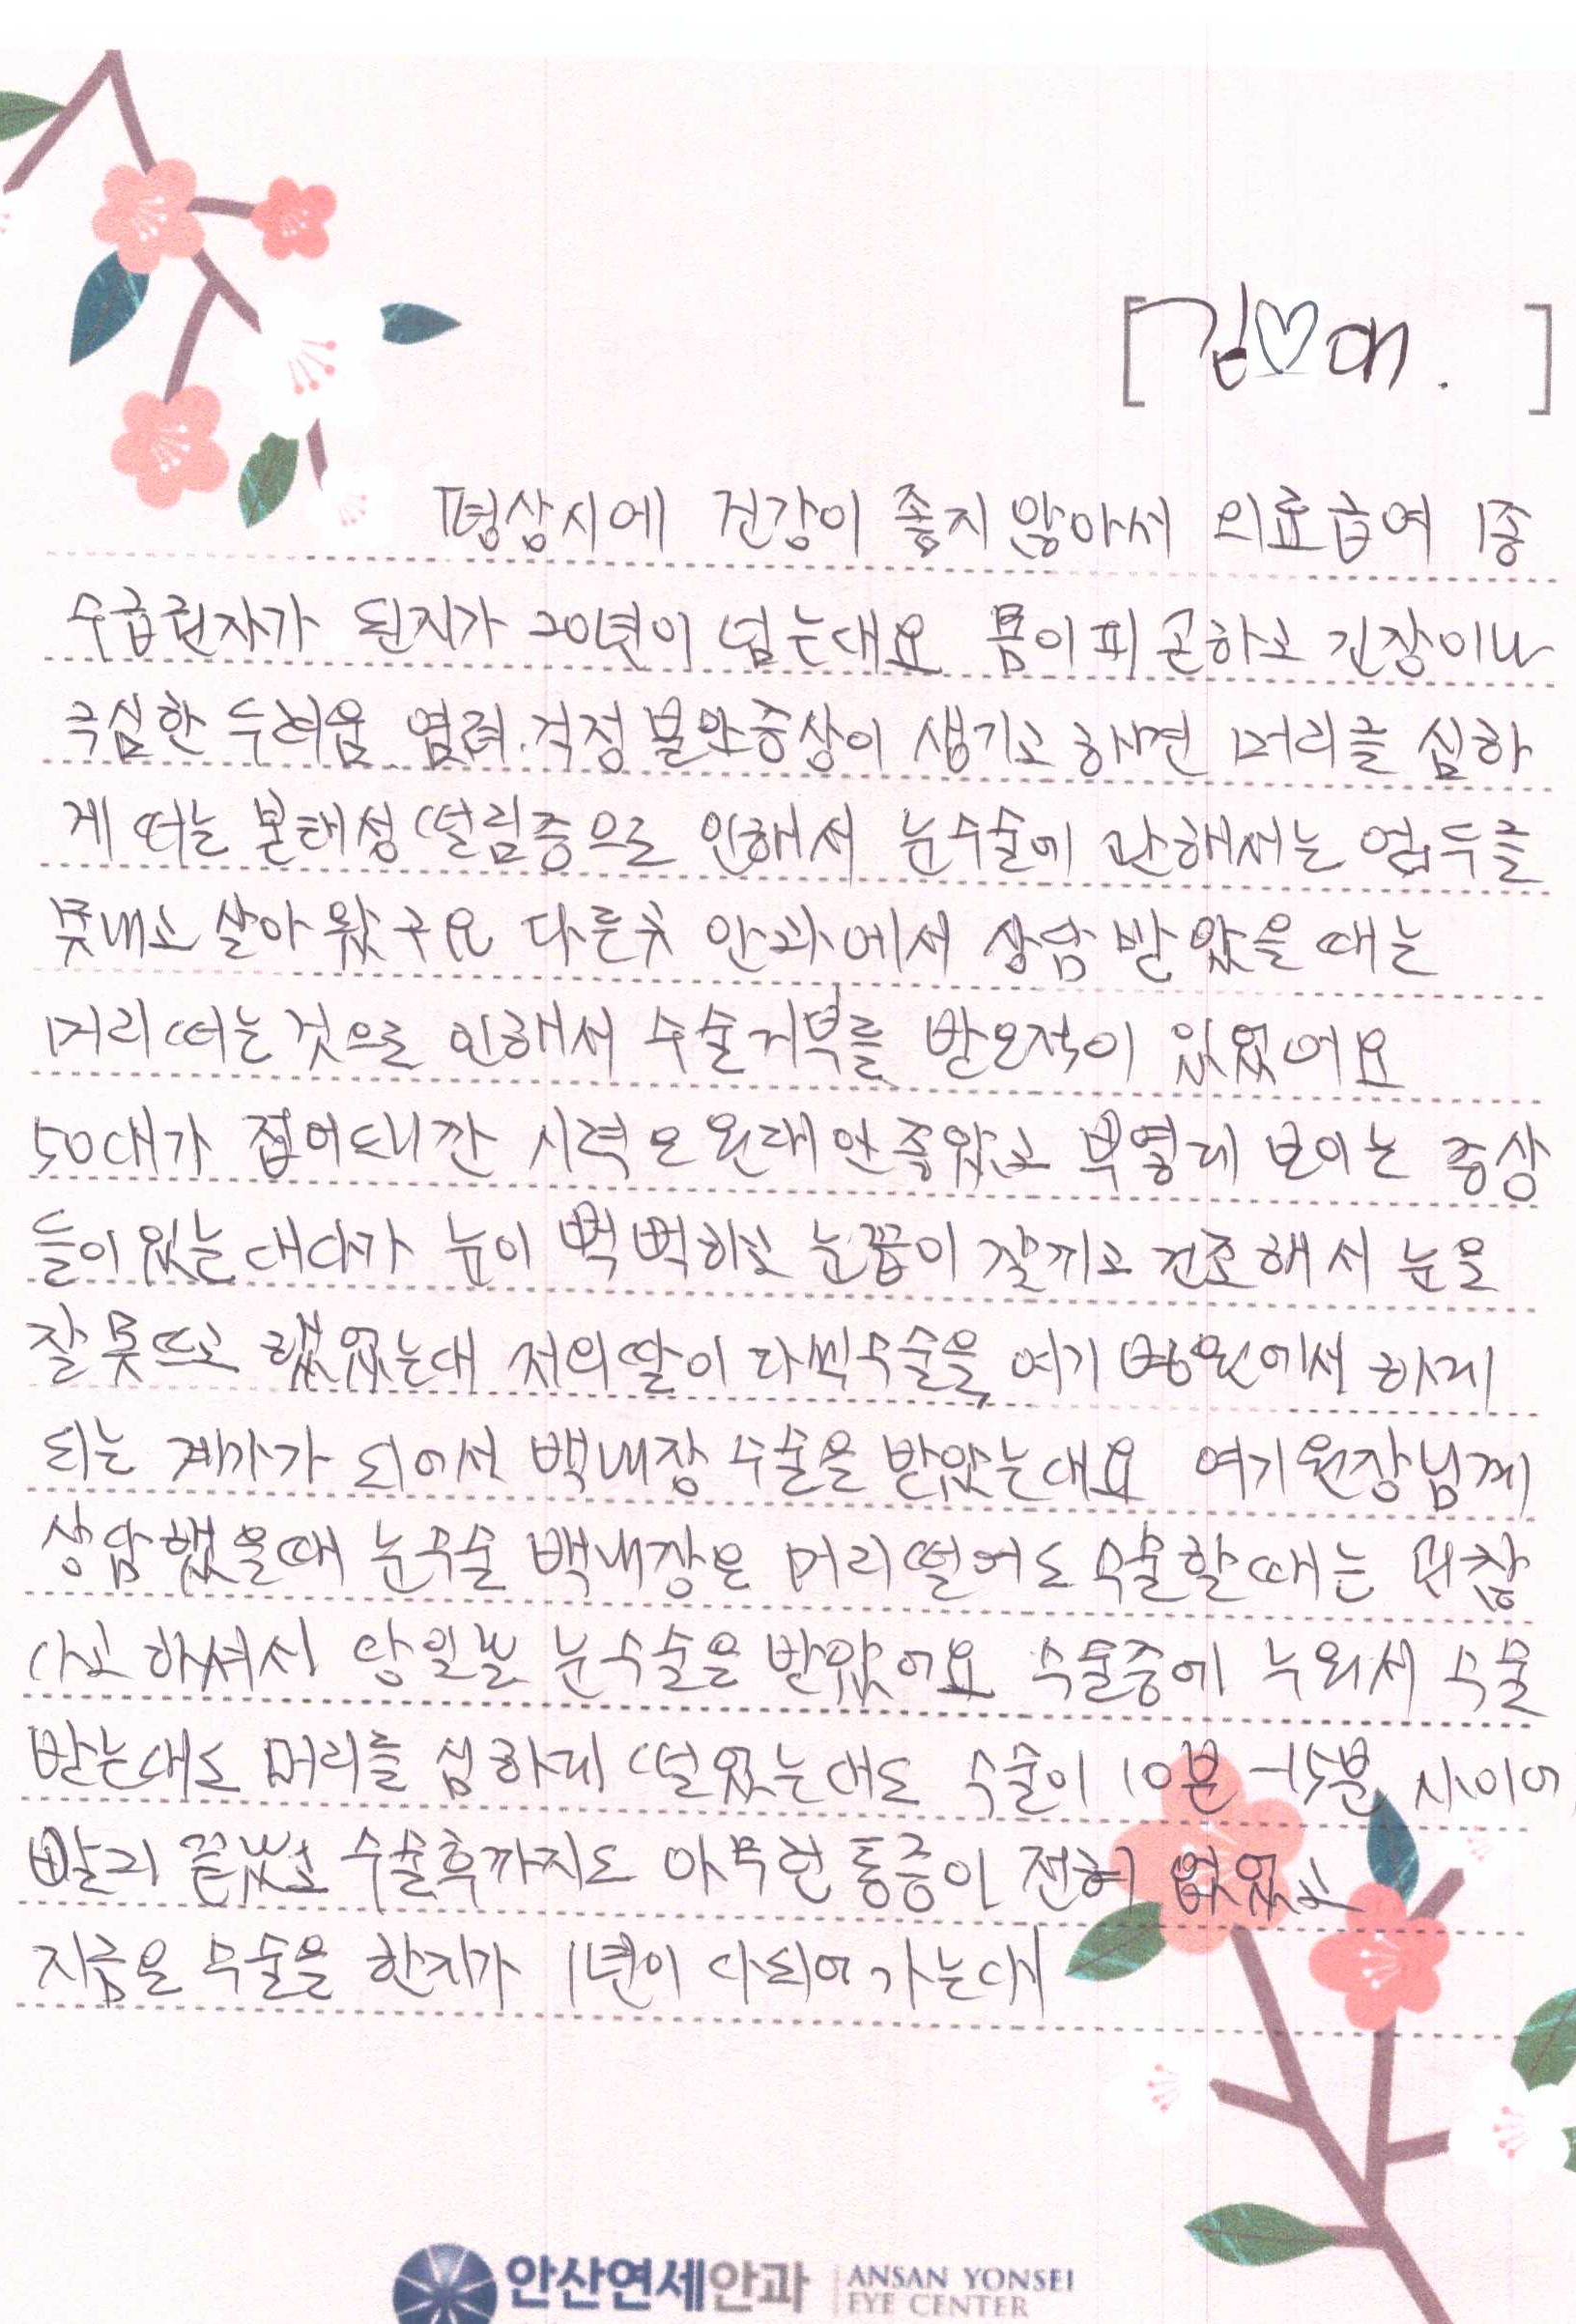 [김♡애. ]
평상시에 건강이 좋지 않아서 의료급여 1종
수급권자가 된지가 20년이 넘는대요 몸이 피곤하고 긴장이나
극심한 두려움 염려.걱정 불안증상이 생기고 하면 머리를 심하
게 떠는 본태성 떨림증으로 인해서 눈수술에 관해서는 엄두를
못내고 살아 왔구요 다른곳 안과에서 상담 받았을 때는
머리 떠는 것으로 인해서 수술거부를 받은적이 있었어요
50대가 접어드니깐 시력은 원래 안좋았고 뿌옇게 보이는 증상
들이 있는 대다가 눈이 뻑뻑하고 눈꼽이 잘끼고 건조해서 눈을
잘 못뜨고 했었는대 저의딸이 라섹수술을 여기 병원에서 하게
되는 계기가 되어서 백내장 수술을 받았는대요 여기원장님께
상담했을때 눈수술 백내장은 머리떨어도 수술할때는 괜찮
다고 하셔서 당일날 눈수술을 받았어요 수술중에 누워서 수술
받는대도 머리를 심하게 떨었는대도 수술이 10분-15분 사이에
빨리 끝났고 수술후까지도 아무런 통증이 전혀 없었고
지금은 수술을 한지가 1년이 다되어 가는대
안산연세안과 ANSAN YONSEI
EYE CENTER